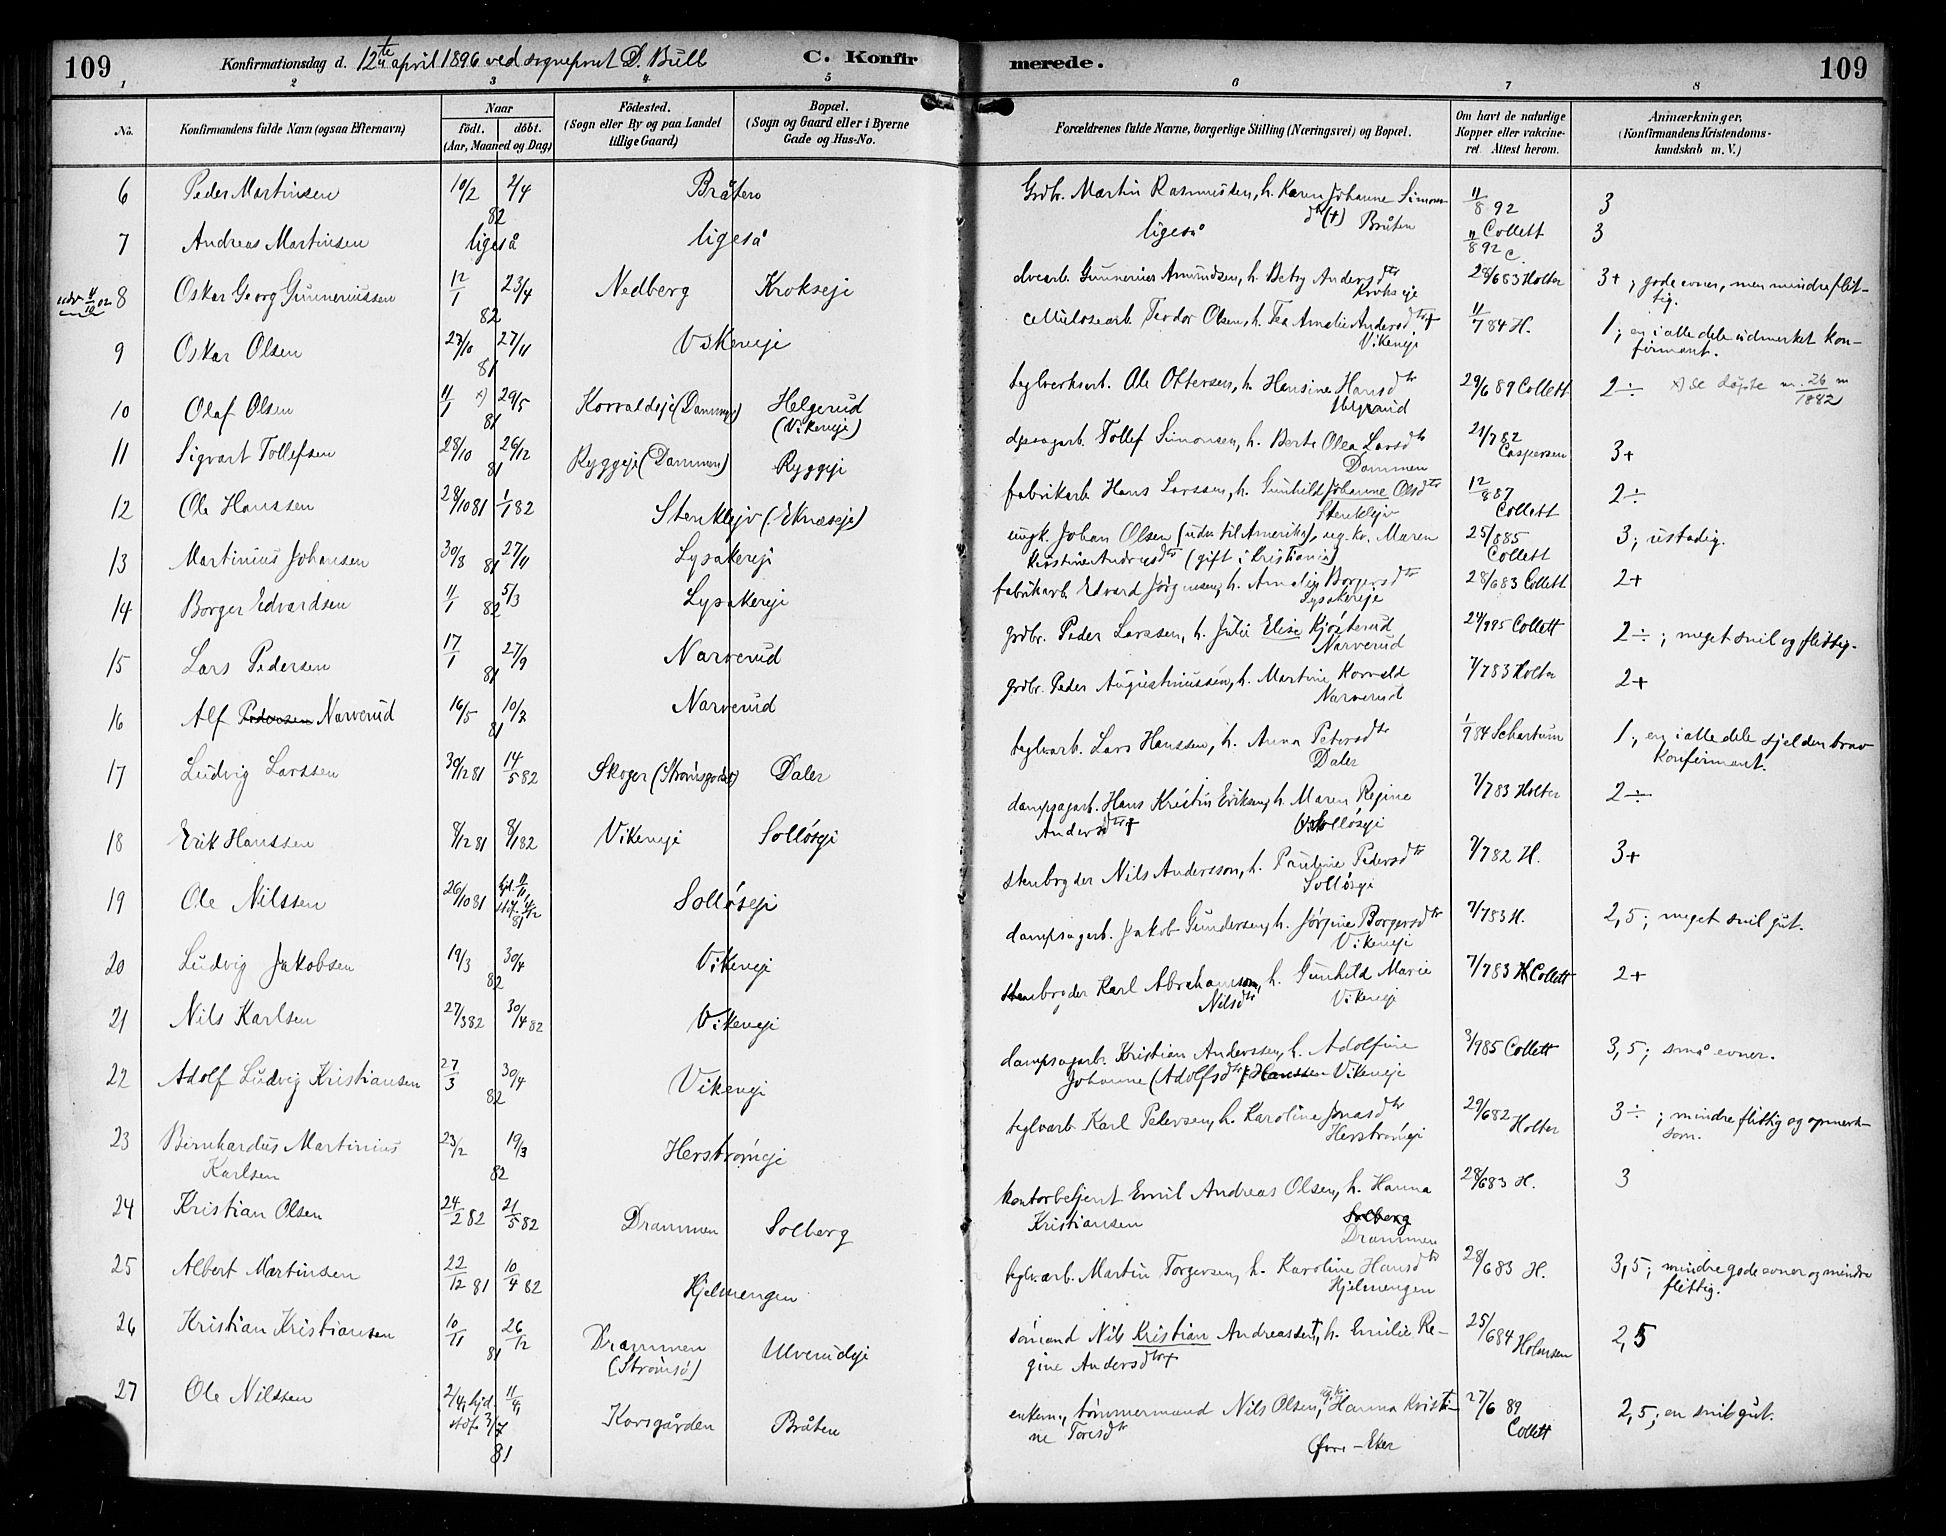 109 Konfirmationsdag d. 12te april 1896 ved sogneprest D. Bull C. Konfirmerede. 109
1 2 3 4 5 6 7 8
No. Konfirmandens fulde Navn (ogsaa Efternavn) Naar födt. döbt. (Aar, Maaned og Dag) Födested. (Sogn eller By og paa Landet tillige Gaard) Bopæl. (Sogn og Gaard eller i Byerne Gade og Hus-No. Forældrenes fulde Navne, borgerlige Stilling (Næringsvei) og Bopæl. Om havt de naturlige Kopper eller vakcineret. Attest herom. Anmærkninger, (Konfirmandens Kristendomskundskab m. V.)
6 Peder Martinsen 10/2 2/4 82 Bråten Grdbr. Martin Rasmussen, h. Karen Johanne Simonsdtr (+) Bråten 11/8 92 Collett 3
7 Andreas Martinsen ligeså ligeså ligeså 11/8 92 C. 3
8 Oskar Georg Gunneriussen 12/1 23/4 82 Nedberg Krokseje Gunnerius Amundsen, h. Betzy Andersdtr Krokseje 28/6 83 Holter 3+, gode evner, men mindre flittig.
9 Oskar Olsen 27/10 27/11 81 Vikeneje Cellulosearb. Teodor Olsen, h. Tea Amalie Andersdtr + Vikeneje 11/7 84 H. 1; en i alle dele udmerket konfirmant.
10 Olaf Olsen 11/1 x) 29/5 81 Korvaldeje (Dammen) Helgerud (Vikeneje) teglverksarb. Ole Ottersen, h. Hensine Hansdtr Helgerud 29/6 89 Collett 2÷ x) se döpte n. 26 m 1882
11 Sigvart Tollefsen 28/10 26/12 81 Ryggeje (Dammen) Ryggeje dpsagarb. Tollef Simonsen, h. Berte Olea Larsdtr Dammen 21/7 82 Caspersen 3+
12 Ole Hanssen 28/10 81 1/1 82 Stenklejv (Eknæseje) fabrikarb. Hans Larssen, h. Gunhild Johanne Olsdtr Stenklejv 12/8 87 Collett 2÷
13 Martinius Johansen 30/8 27/11 81 Lysakereje ungk. Johan Olsen (udv. til Amerika), ug. kv. Maren Kristine Andersdtr (gift i Kristiania) 25/8 85 Collett 3; ustadig.
14 Borger Edvardsen 11/1 5/3 82 Lysakereje fabrikarb. Edvard Jörgensen, h. Amalie Borgersdtr Lysakereje 28/6 83 Collett 2+
15 Lars Pedersen 17/1 27/9 81 Narverud grdbr. Peder Larssen, h. Julie Elise Kjösterud Narverud 24/9 95 Collett 2÷; meget snil og flittig.
16 Alf Pedersen Narverud 16/5 10/7 81 Narverud grdbr. Peder Augustinussen, h. Martine Korvald Narverud 7/7 83 Holter 2+
17 Ludvig Larssen 30/12 81 14/5 82 Skoger (Strömsgodset) Daler teglvarb. Lars Hanssen, h. Anna Petersdtr Daler 1/9 84 Schartum 1; en i alle dele sjelden brav konfirmant.
18 Erik Hanssen 8/12 81 8/1 82 Vikeneje Sollöseje dampsagarb. Hans Kristin Eriksen, h. Maren Regine Andersdtr + Sollöseje 7/7 83 Holter 2÷
19 Ole Nilssen 26/10 81 hjd. 11/11, stdf. 4/12 81 Sollöseje stenbryder Nils Andersson, h. Pauline Pedersdtr Sollöseje 7/7 82 H. 3+
20 Ludvig Jakobsen 19/3 30/4 82 Vikeneje dampsagarb. Jakob Gundersen, h. Jörgine Borgersdtr Vikeneje 7/7 83 H. 2,5; meget snil gut.
21 Nils Karlsen 27/3 82 30/4 82 Vikeneje stenbryder Karl Abrahamson, h. Gunhild Marie Nilsdtr Vikeneje 7/7 83 Collett 2+
22 Adolf Ludvig Kristiansen 27/3 30/4 82 Vikeneje dampsagarb. Kristian Anderssen, h. Adolfine Johanne (Adolfsdtr) Hanssen Vikeneje 3/9 85 Collett 3,5; små evner.
23 Bernhardus Martinius Karlsen 23/2 19/3 82 Herströmeje teglvarb. Karl Petersen, h. Karoline Jonasdtr Herströmeje 29/6 82 Holter 3÷; mindre flittig og opmerksom.
24 Kristian Olsen 24/2 82 21/5 82 Drammen Solberg kontorbetjent Emil Andreas Olsen, h. Hanna Kristiansen Solberg Drammen 28/6 83 H. 3
25 Albert Martinsen 22/12 81 10/4 82 Hjelmengen teglv.arb. Martin Torgersen, h. Karoline Hansdtr Hjelmengen 28/6 83 H. 3,5; mindre gode evner og mindre flittig.
26 Kristian Kristiansen 10/11 26/12 81 Drammen (Strömsö) Ulverudeje sömand Nils Kristian Andreassen +, h. Emilie Regine Andersdtr + 25/6 84 Holmsen 2,5
27 Ole Nilssen 2/4, hjd. 11/4, stdf. 3/7 81 Korsgården Bråten enkem., tömmermand Nils Olsen, ug. kv. Hanna Kristine Toresdtr Övre-Eker 27/6 89 Collett 2,5; en snil gut.